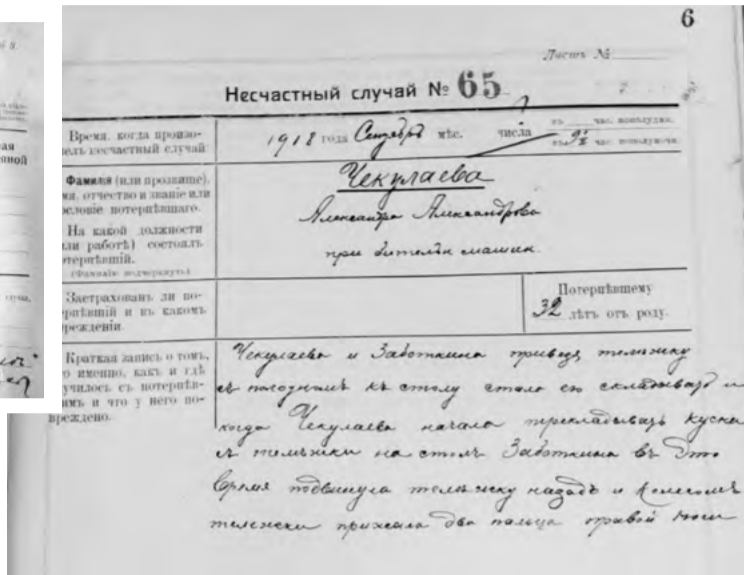 6
Листъ №
Несчастный случай № 65
Время, когда произо-
шелъ несчастный случай
1918 года Сентября мѣс. числа
въ час. пополудни.
въ 9½ час. пополуночи.
Фамилія (или прозвище),
имя, отчество и званіе или
сословіе потерпѣвшаго.
На какой должности
(или работѣ) состоялъ
потерпѣвшій.
(Фамилію подчеркнуть)
Чекулаева
Александра Александрова
при машин
Застрахованъ ли по-
терпѣвшій и въ какомъ
учрежденіи
Потерпѣвшему
32 лѣтъ отъ роду.
Краткая запись о томъ,
что именно, какъ и гдѣ
случилось съ потерпѣв-
шимъ и что у него по-
вреждено.
Чекулаева и Заботкина привезя тележку
съ къ столу стала ею складывать и
когда Чекулаева начала перекладывать куски
съ тележки на столъ Заботкина въ это
время подвинула тележку назадъ и колесомъ
тележки прижала два пальца правой ноги